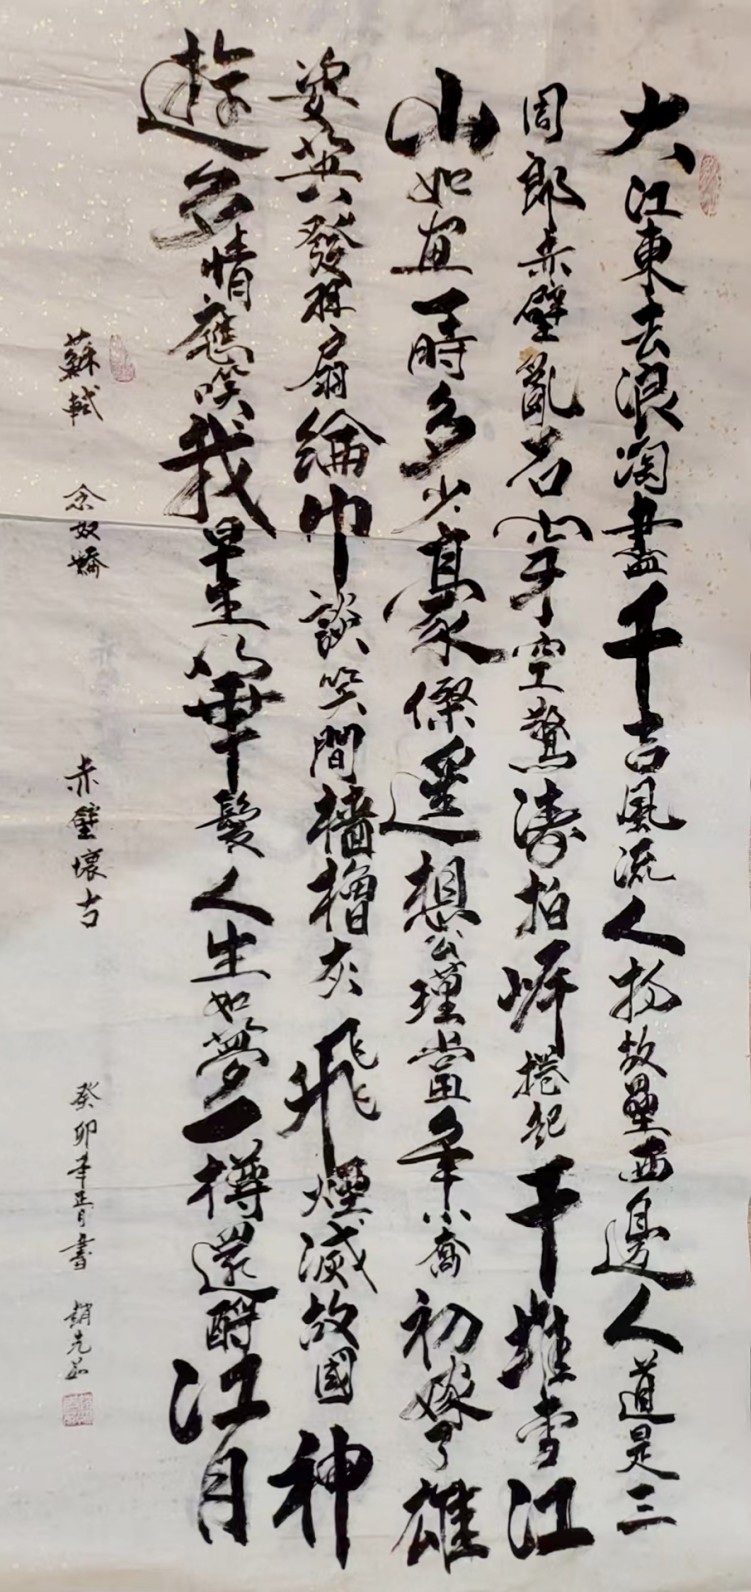 大江東去浪淘盡千古風流人物故壘西邊人道是三
周郎赤壁亂石穿空驚濤拍岸捲起千堆雪江
山如畫一時多少豪傑遙想公瑾當年小喬初嫁了雄
姿英發羽扇綸巾談笑間檣櫓灰飛煙滅故國神
遊多情應笑我早生華髮人生如夢一樽還酹江月
蘇軾 念奴嬌 赤壁壞古 癸卯年 書 趙先